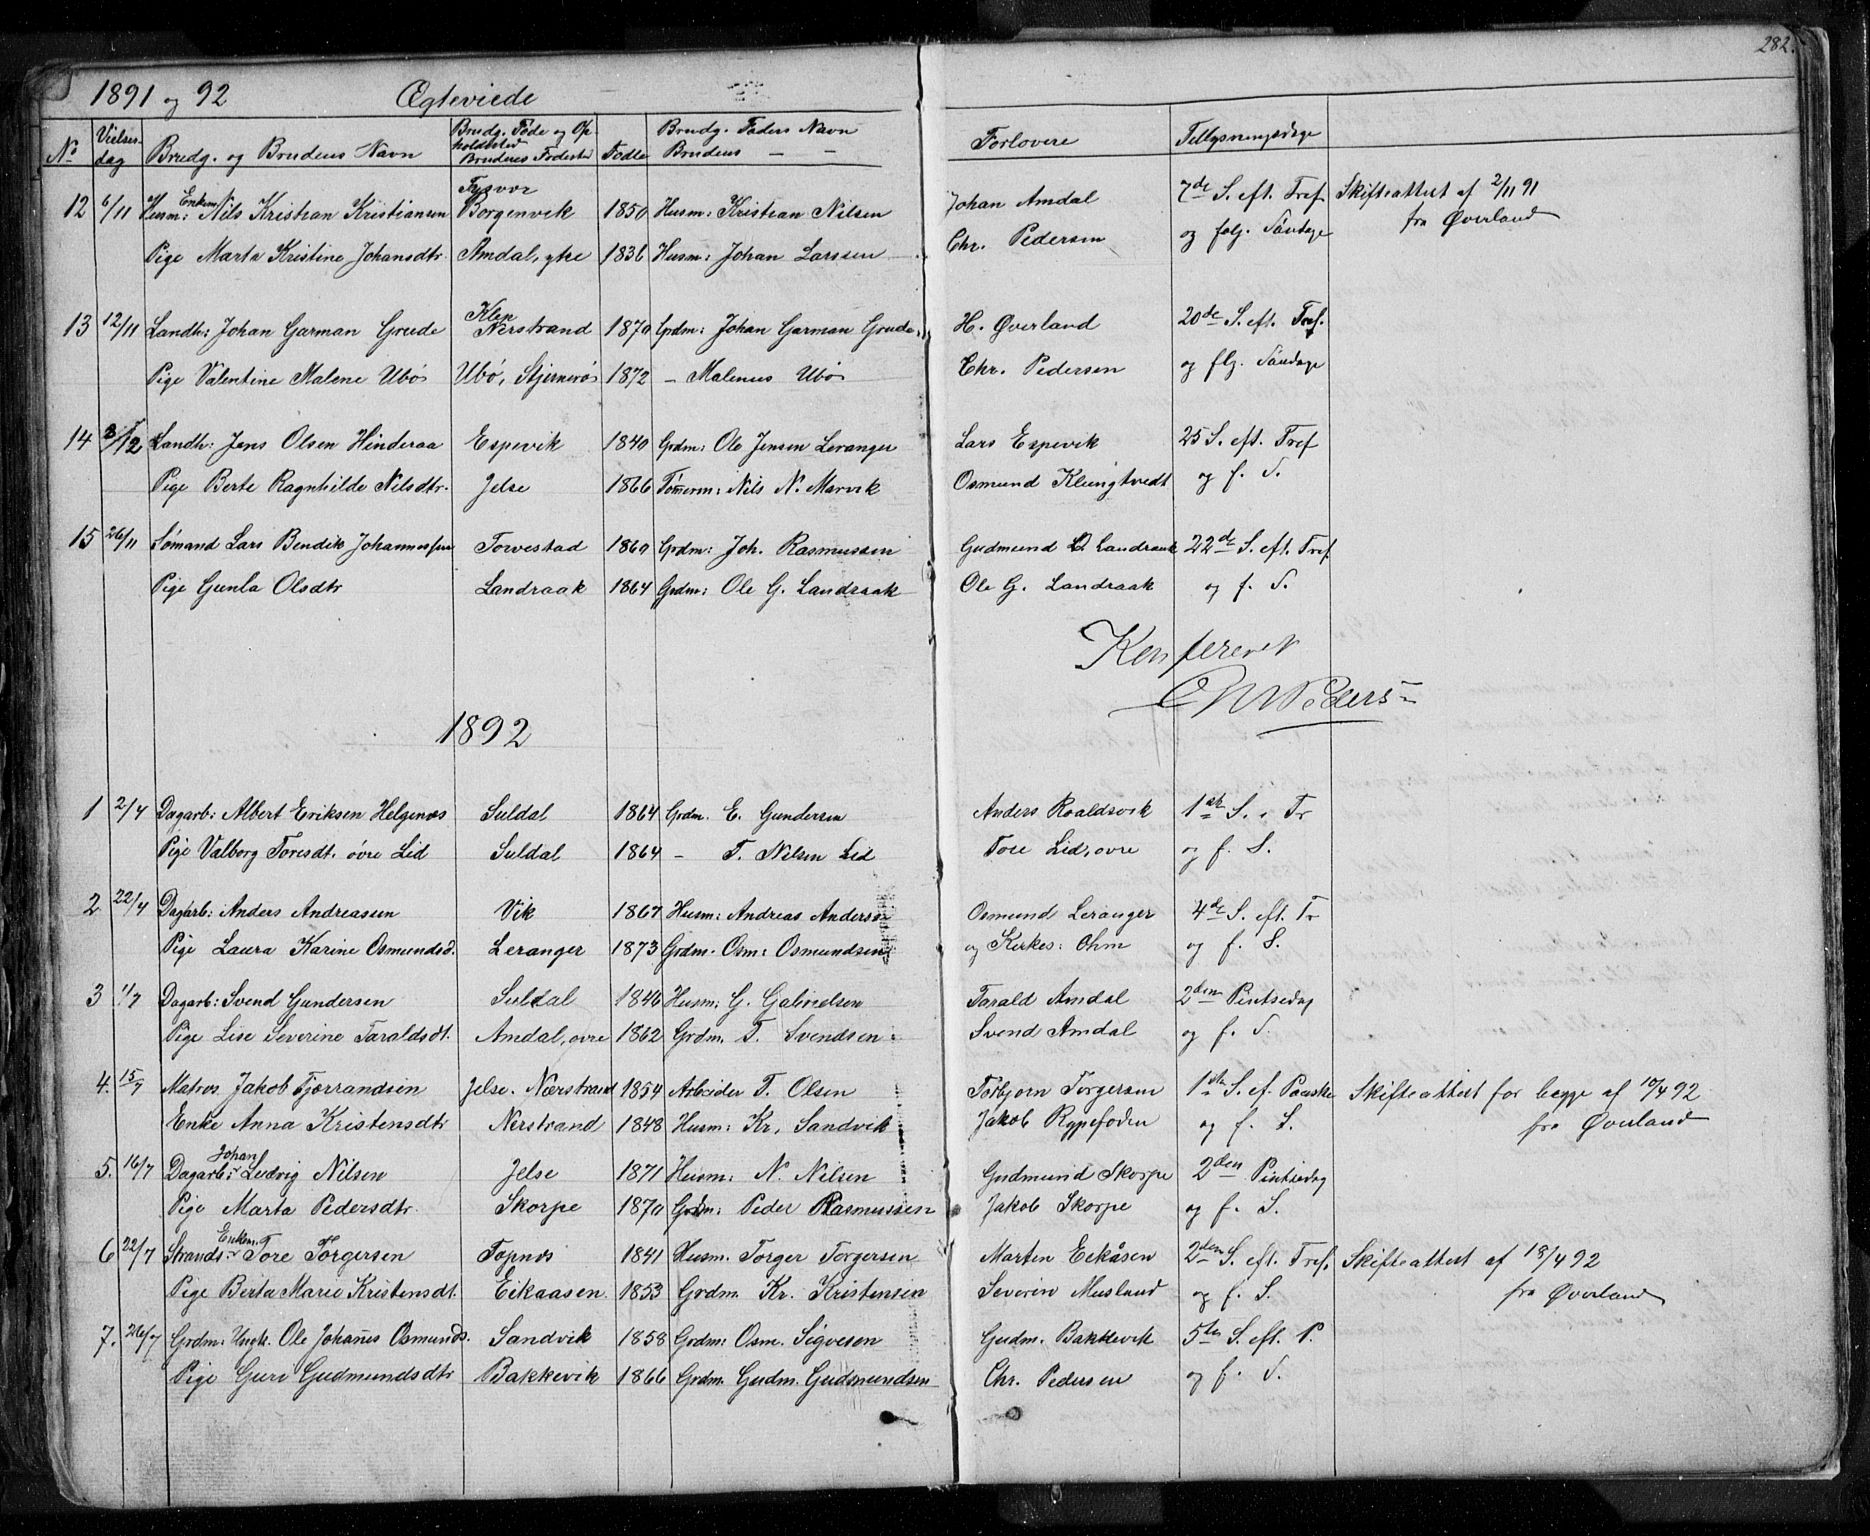 282.
1891 og 92 Ægteviede
No Vielses- dag Brudg. og Brudens Navn Brudg. Føde og Op- holdssted Brudenes Fødested Fødte Brudg. Faders Navn Brudens — — Forlovere Tillysningsdage
12 6/11 Husm: Enkem. Nils Kristian Kristiansen Tysvær Borgenvik 1850 Husm: Kristian Nilsen Johan Amdal 7de S. eft. Tref. Skifteattest af 2/11 91
Pige Marta Kristine Johansdtr. Amdal, ytre 1836 Husm: Johan Larssen Chr. Pedersen og følg. Søndage fra Øverland
13 12/11 Landh: Johan Garman Grude Klep Nerstrand 1870 Grdm: Johan Garman Grude H. Øverland 20de S. eft. Tref.
Pige Valentine Malene Ubø Ubø, Stjernerø 1872 - Malenus Ubø Chr. Pedersen og flg. Søndage
14 3/12 Landh: Jens Olsen Hinderaa Espevik 1840 Grdm: Ole Jensen Leranger Lars Espevik 25 S. eft. Tref
Pige Berte Ragnhilde Nilsdtr. Jelse 1866 Tømerm: Nils N. Marvik Osmund Klungtvedt og f. S.
15 26/11 Sømand Lars Bendik Johannessen Torvestad 1860 Grdm: Joh. Rasmussen Gudmund O Landraak 22de S. eft. Tref
Pige Gunla Olsdtr Landraak 1864 Grdm: Ole G. Landraak Ole G. Landraak og f. S.
Konfereret
Chr Peders-
1892
1 2/4 Dagarb: Albert Eriksen Helgenæs Suldal 1864 Grdm. E. Gundersen Anders Roaldsvik 1ste S. . Tr
Pige Valborg Toresdt. øvre Lid Suldal 1864 - T. Nilsen Lid Tore Lid, øvre og f. S.
2 22/4 Dagarb: Anders Andreassen Vik 1867 Husm: Andreas Anderse Osmund Leranger 4de S. eft. Tr
Pige Laura Karine Osmundsd. Leranger 1873 Grdm. Osm: Osmundsen og Kirkes: Ohm og f. S.
3 1/7 Dagarb: Svend Gundersen Suldal 1846 Husm: G. Gabrielsen Tarald Amdal 2den Pintsedag
Pige Lise Severine Taraldsdt. Amdal, øvre 1862 Grdm. T. Svendsen Svend Amdal og f. S.
4. 15/7 Matros Jakob Tjørrandsen Jelse. Nærstrand 1854 Arbeider T. Olsen Torbjørn Torgersen 1ste S. ef. Paaske Skifteattest for begge af 10/4 92
Enke Anna Kristensdtr Nerstrand 1848 Husm: Kr. Sandvik Jakob Rypefoden og f. S. fra Øverland
5. 16/7 Dagarb: Johan Ludvig Nilsen Jelse 1871 Husm: N. Nilsen Gudmund Skorpe 2den Pintsedag
Pige Marta Pedersdtr. Skorpe 1870 Grdm: Peder Rasmussen Jakob Skorpe og f. S.
6 22/7 Strands: Enkem. Tore Torgersen Topnes 1841 Husm. Torger Torgersen Marten Eikåsen 2den S. eft. Tref. Skifteattest af 18/4 92
Pige Berta Marie Kristensdt. Eikaasen 1853 Grdm. Kr. Kristensen Severin Musland og f. S. fra Øverland
7. 26/7 Grdm: Ungk. Ole Johanes Osmunds. Sandvik 1858 Grdm: Osm. Sigvesen Gudm. Bakkevik 5te S. eft. P.
Pige Guri Gudmundsdtr Bakkevik 1866 Grdm. Gudm. Gudmundsen Chr. Pedersen og f. S.